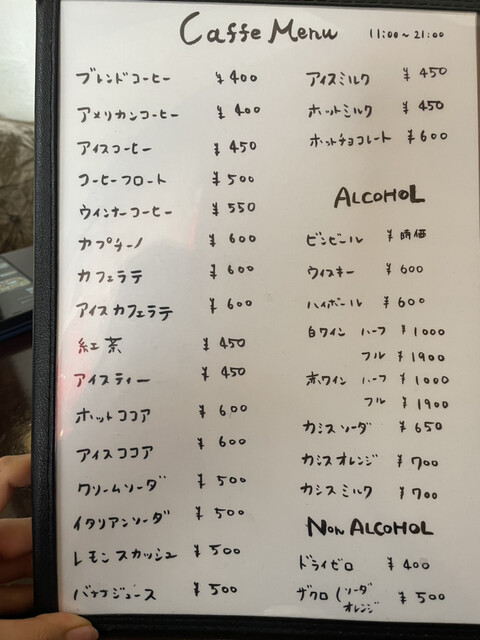 Caffe Menu 11:00~21:00
ブレンドコーヒー ¥400
アメリカンコーヒー ¥400
アイスコーヒー ¥450
コーヒーフロート ¥500
ウィンナーコーヒー ¥550
カプチーノ ¥600
カフェラテ ¥600
アイスカフェラテ ¥600
紅茶 ¥450
アイスティー ¥450
ホットココア ¥600
アイスココア ¥600
クリームソーダ ¥500
イタリアンソーダ ¥500
レモンスカッシュ ¥500
バナナジュース ¥500
アイスミルク ¥450
ホットミルク ¥450
ホットチョコレート ¥600
ALCOHOL
ビンビール ¥時価
ウイスキー ¥600
ハイボール ¥600
白ワイン ハーフ ¥1000
フル ¥1900
赤ワイン ハーフ ¥1000
フル ¥1900
カシスソーダ ¥650
カシスオレンジ ¥700
カシスミルク ¥700
Non ALCOHOL
ドライゼロ ¥400
ザクロ(ソーダ ¥500
オレンジ